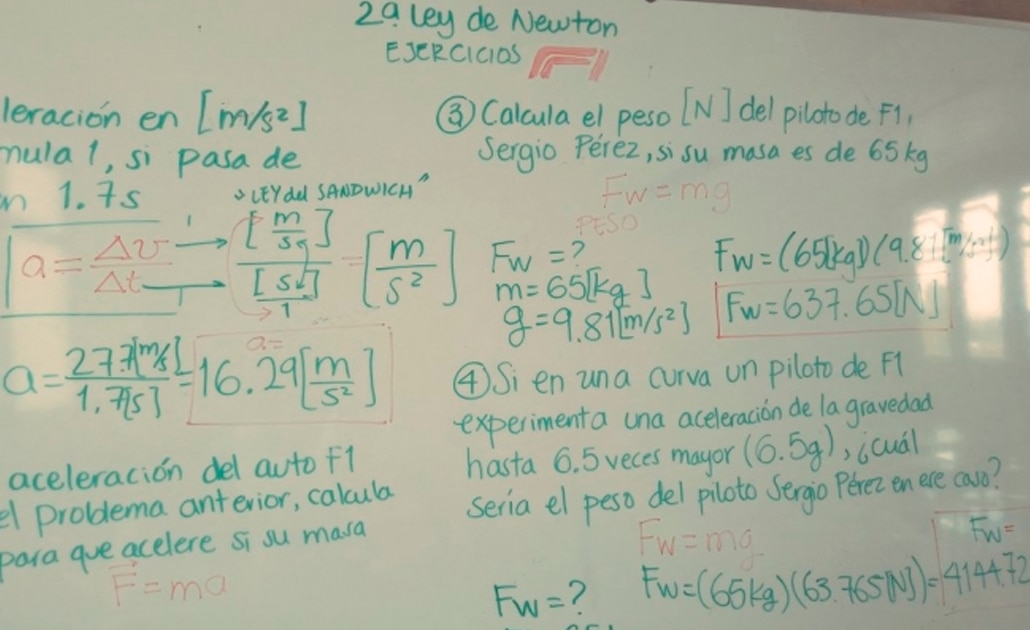 2ª Ley de Newton
EJERCICIOS
leración en [m/s²]
mula 1, si pasa de
n 1.7s
"LEY del SANDWICH"
a = Δv/Δt → [m/s]/[s]/1 = [m/s²]
a = 27.7[m/s]/1.7[s] = 16.29[m/s²]
a=
aceleración del auto F1
el problema anterior, calcula
para que acelere si su masa
F = ma
③ Calcula el peso [N] del piloto de F1,
Sergio Pérez, si su masa es de 65kg
Fw = mg
PESO
Fw = ?
m = 65[kg]
g = 9.81[m/s²]
Fw = (65[kg])(9.81[m/s²])
Fw = 637.65[N]
④ Si en una curva un piloto de F1
experimenta una aceleración de la gravedad
hasta 6.5 veces mayor (6.5g), ¿cuál
sería el peso del piloto Sergio Pérez en ese caso?
Fw = mg
Fw = ?
Fw = (65kg)(63.765[N]) =
Fw =
4144.72